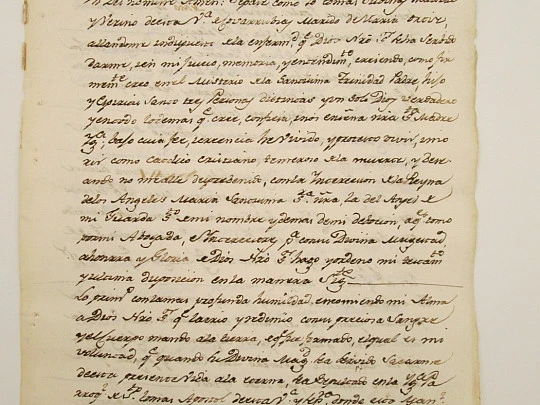 En el nombre Amen: Sepase como lo Tomas
y Verino de esta V.ª de Covarrubias, Marido de Maria
allandome indispuesto de la enfermd. q.e Dios Nro S.r ha Servido
darme, i en mi juicio, memoria, y entendim.to, creiendo, como fir
mem.te creo, en el Misterio de la Santisima Trinidad Padre, hijo
y Espiritu Santo tres Personas distintas y un solo Dios Verdadero
y en todo lo demas q.e cree, confiesa, i nos enseña nra S.ta Madre
Yg.ª bajo cuia fee, i creencia he Vivido, y protesto vivir, i mo
rir como catolico cristiano, temeroso de la muerte, y dese
ando no me alle desprebenido, con la Intercesion de la Reyna
de los Angeles Maria Santisima S.ra nra, la del Angel de
mi Guarda S.to de mi nombre y demas de mi debocion, a q.n tomo
por mi Abogada, e Intercesora p.ª con su Divina Magestad,
a honrra y Gloria de Dios Nro S.r hago y ordeno mi testam.to
y ultima disposicion en la manera Sig.te
Lo prim.o con la mas profunda humildad, encomiendo mi Alma
a Dios Nro S.r q.e la crio, y redimio con su preciosa Sangre
y el cuerpo mando a la tierra, de q.e fue formado, el qual es mi
voluntad, q.e quando su Divina Mag.d sea servido Sacarme
de esta presente Vida a la eterna, sea Sepultado en la Yg.ª Pa
rroq.l de S.to Tomas Apostol de esta V.ª donde